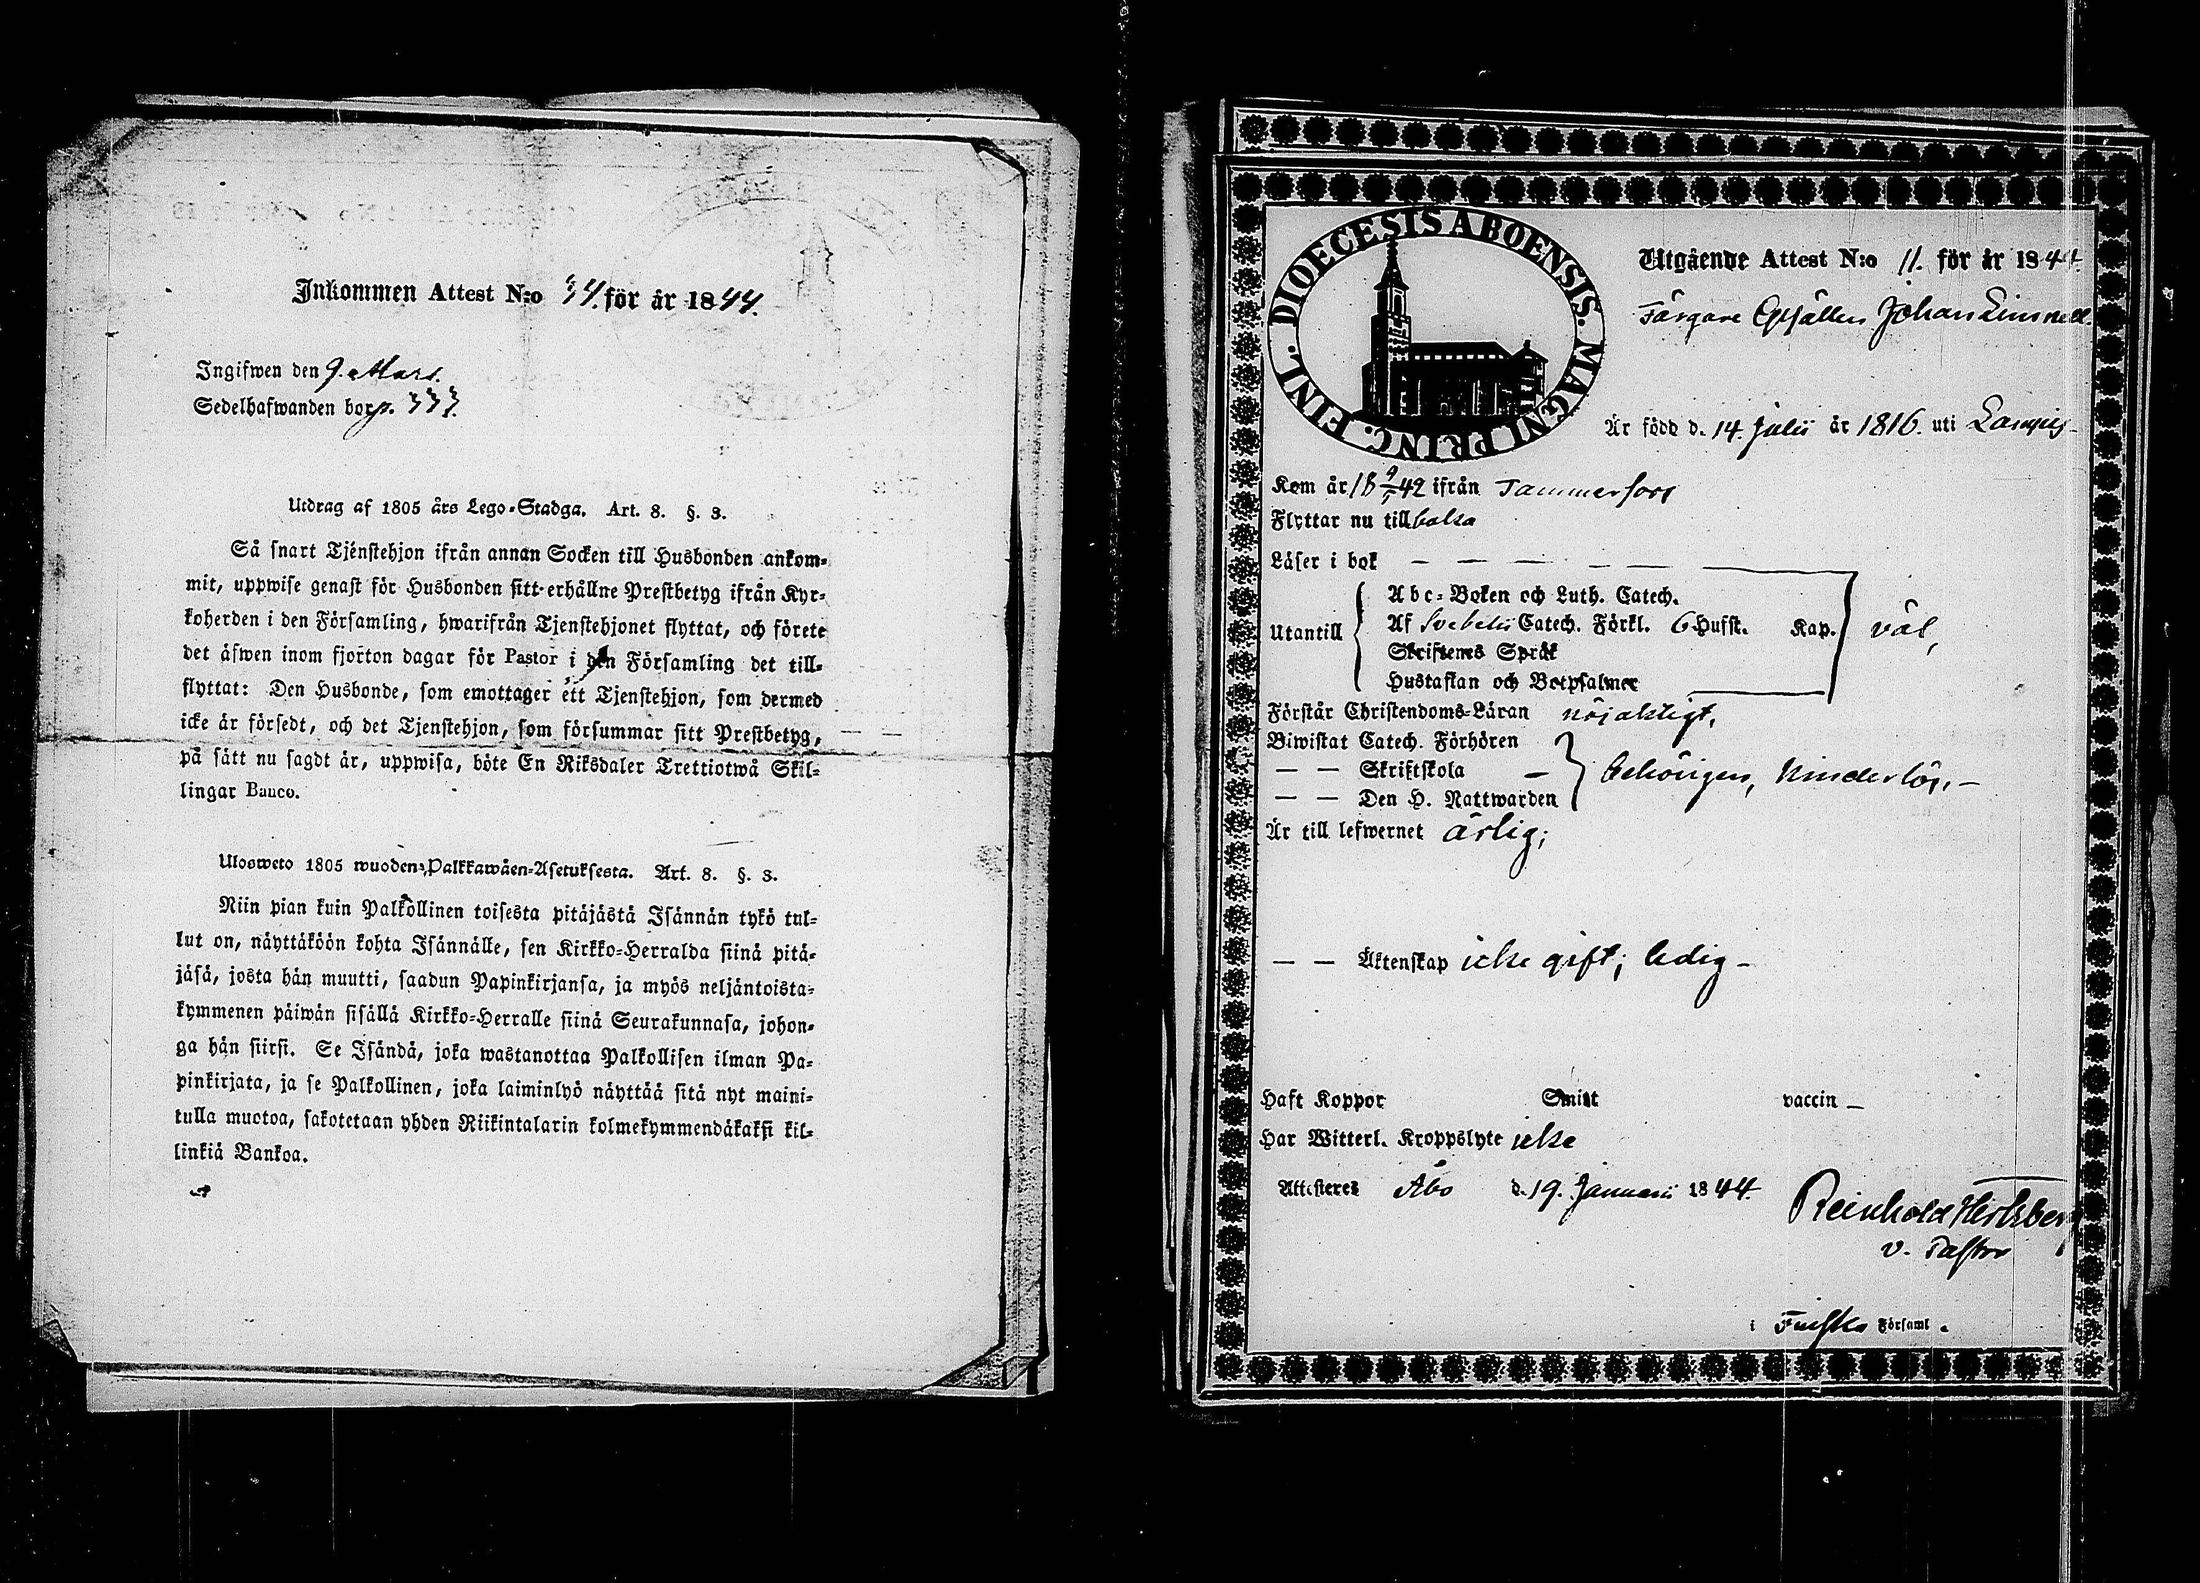 Inkommen Attest N:o 34. för år 1844.
Ingifwen den 9. Mars.
Sedelhafwanden bor p. 333.
Utdrag af 1805 års Lego-Stadga. Art. 8. §. 3.
Så snart Tjenstehjon ifrån annan Socken till Husbonden ankom-
mit, uppwise genast för Husbonden sitt erhållne Prestbetyg ifrån Kyr-
koherden i den Församling, hwarifrån Tjenstehjonet flyttat, och förete
det äfwen inom fjorton dagar för Pastor i den Församling det till-
flyttat: Den Husbonde, som emottager ett Tjenstehjon, som dermed
icke är försedt, och det Tjenstehjon, som försummar sitt Prestbetyg,
på sätt nu sagdt är, uppwisa, böte En Riksdaler Trettiotwå Skil-
lingar Banco.
Ulosweto 1805 wuoden Palkkawäen-Asetuksesta. Art. 8. §. 3.
Niin pian kuin Palkollinen toisesta pitäjästä Isännän tykö tul-
lut on, näyttäköön kohta Isännälle, sen Kirkko-Herralda siinä pitä-
jäsä, josta hän muutti, saadun Papinkirjansa, ja myös neljäntoista-
kymmenen päiwän sisällä Kirkko-Herralle siinä Seurakunnasa, johon-
ga hän siirsi. Se Isändä, joka wastanottaa Palkollisen ilman Pa-
pinkirjata, ja se Palkollinen, joka laiminlyö näyttää sitä nyt maini-
tulla muotoa, sakotetaan yhden Riikintalarin kolmekymmendäkaksi kil-
linkiä Bankoa.
DIOECESIS ABOENSIS. MAGNI PRINC. FINL.
Utgående Attest N:o 11. för år 1844.
Färgare Gesällen Johan Linnell.
Är född d. 14. Julii år 1816. uti
Kom år 18 9/5 42 ifrån Tammerfors
Flyttar nu till
Läser i bok — — — — —
Utantill
Abc-Boken och Luth. Catech.
Af Svebelii Catech. Förkl. 6 Hufst. Kap. väl,
Skriftenes Språk
Hustaflan och Botpsalmer
Förstår Christendoms-Läran nöjaktigt,
Biwistat Catech. Förhören
— — Skriftskola —
— — Den H. Nattwarden
behörigen, hinderlös. —
Är till lefwernet ärlig;
— — Äktenskap icke gift; ledig —
Haft Koppor Smitt vaccin —
Har Witterl. Kroppslyte icke
Attesteres Åbo d. 19. Januarii 1844
Reinhold Hertzberg
v. Pastor
i Finska Församl.